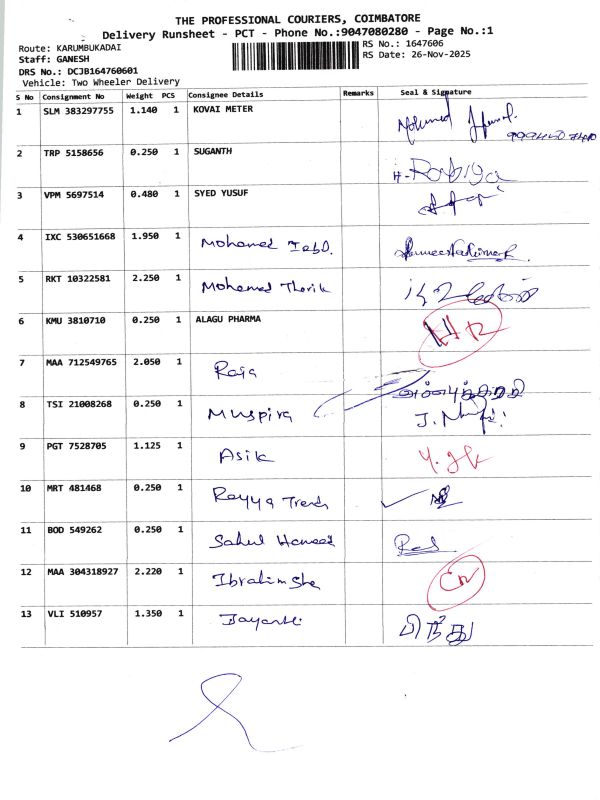 THE PROFESSIONAL COURIERS, COIMBATORE
Delivery Runsheet - PCT - Phone No.:9047080280 - Page No.:1
Route: KARUMBUKADAI
RS No.: 1647606
Staff: GANESH
RS Date: 26-Nov-2025
DRS No.: DCJB164760601
Vehicle: Two Wheeler Delivery
S No Consignment No Weight PCS Consignee Details Remarks Seal & Signature
1 SLM 383297755 1.140 1 KOVAI METER Mohamed
2 TRP 5158656 0.250 1 SUGANTH H. Rabiya
3 VPM 5697514 0.480 1 SYED YUSUF
4 IXC 530651668 1.950 1 Mohamed
5 RKT 10322581 2.250 1 Mohamed Tharik
6 KMU 3810710 0.250 1 ALAGU PHARMA
7 MAA 712549765 2.050 1 Raja
8 TSI 21008268 0.250 1 Muspira
9 PGT 7528705 1.125 1 Asik
10 MRT 481468 0.250 1 Rayya
11 BOD 549262 0.250 1 Sahul Hameed
12 MAA 304318927 2.220 1 Ibrahim Sha
13 VLI 510957 1.350 1 Jayanthi பிந்து